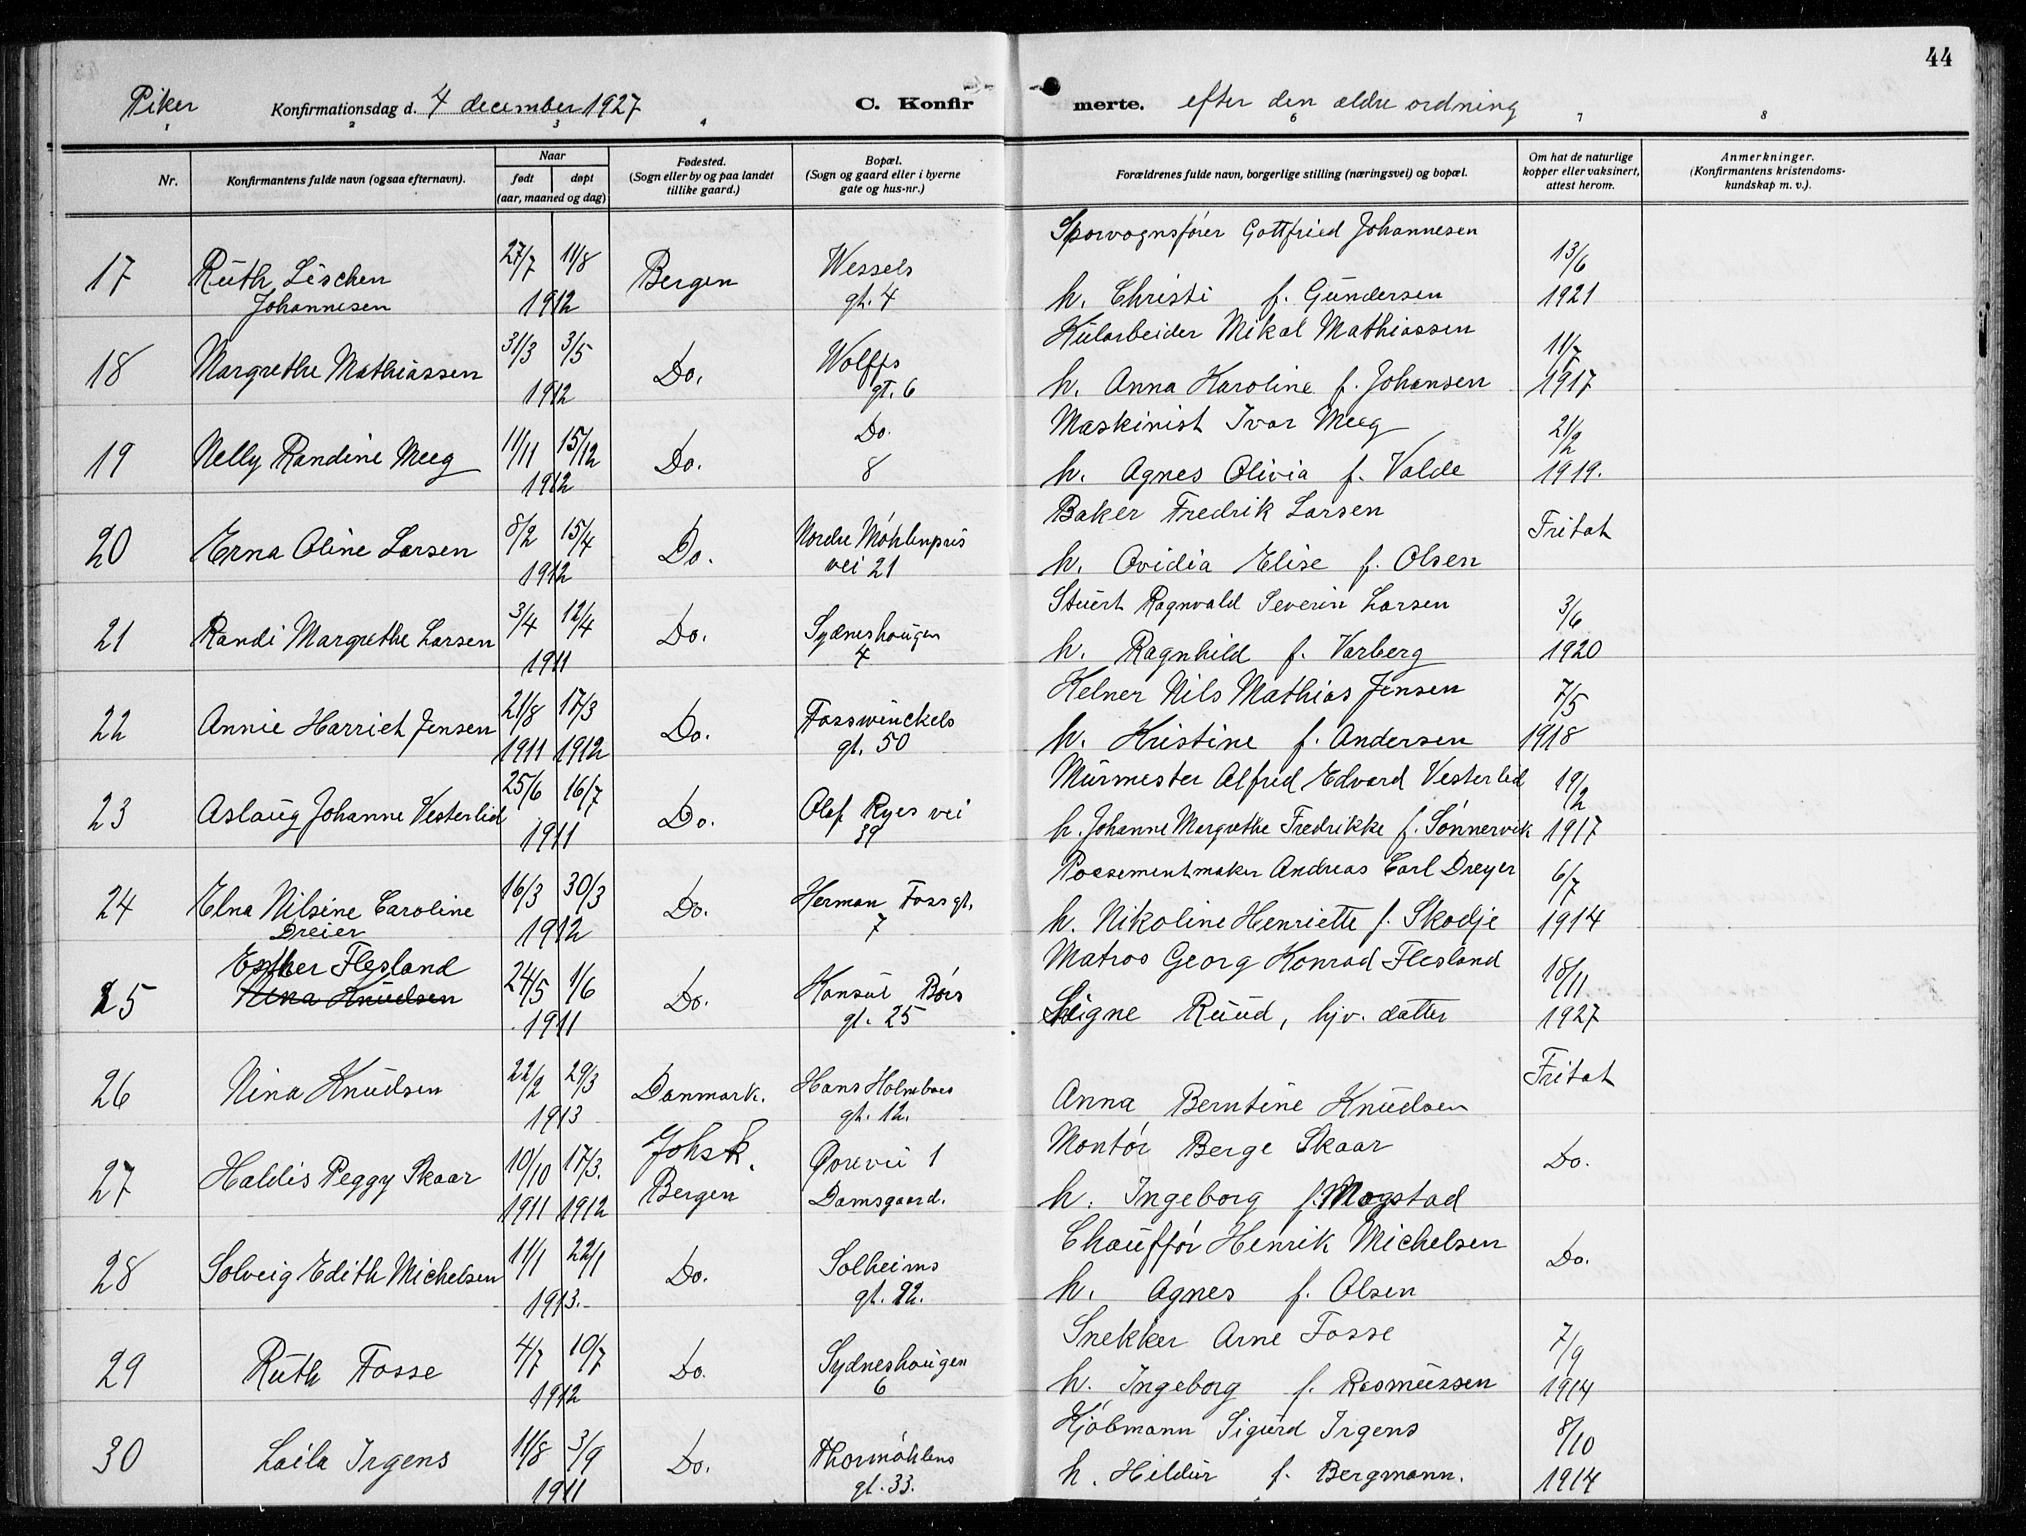 44
Piker Konfirmationsdag d. 4 december 1927 C. Konfirmerte. efter den ældre ordning
1 2 3 4 6 7 8
Nr. Konfirmantens fulde navn (ogsaa efternavn). Naar født døpt (aar, maaned og dag) Fødested. (Sogn eller by og paa landet tillike gaard.) Bopæl. (Sogn og gaard eller i byerne gate og hus-nr.) Forældrenes fulde navn, borgerlige stilling (næringsvei) og bopæl. Om hat de naturlige kopper eller vaksinert, attest herom. Anmerkninger. (Konfirmantens kristendomskundskap m. v.).
17 Ruth Lischen Johannesen 27/7 11/8 1912 Bergen Wessels gt. 4 Sporvognsfører Gottfried Johannesen 13/6
h. Christi f. Gundersen 1921
18 Margrethe Mathiassen 31/3 3/5 1912 Do. Wolffs gt. 6 Kularbeider Mikal Mathiassen 11/7
h. Anna Karoline f. Johansen 1917
19 Nelly Randine Meeg 11/11 15/12 1912 Do. Do. 8 Maskinist Ivar Meeg 21/2
h. Agnes Olivia f. Valde 1919.
20 Erna Oline Larsen 8/2 15/4 1912 Do. Nordre Møhlenpris vei 21 Baker Fredrik Larsen Fritat
h. Ovidia Elise f. Olsen
21 Randi Margrethe Larsen 3/4 12/4 1911 Do. Sydneshaugen 4 Stuert Ragnvald Severin Larsen 3/6
h. Ragnhild f. Varberg 1920
22 Annie Harriet Jensen 21/8 1911 17/3 1912 Do. Fosswinckels gt. 50 Kelner Nils Mathias Jensen 7/5
h. Kristine f. Andersen 1918
23 Aslaug Johanne Vesterlid 25/6 16/7 1911 Do. Olaf Ryes vei 39 Murmester Alfred Edvard Vesterlid 19/2
h. Johanne Margrethe Fredrikke f. Sønnervik 1917
24 Elna Nilsine Caroline Dreier 16/3 30/3 1912 Do. Herman Foss gt. 7 Possementmaker Andreas Carl Dreyer 6/7
h. Nikoline Henriette f. Skodje 1914
25 Esther Flesland Nina Knudsen 24/5 1/6 1911 Do. Konsul Børs gt. 25 Matros Georg Konrad Flesland 18/11
Signe Ruud, hjv. datter 1927
26 Nina Knudsen 22/2 29/3 1913 Danmark. Hans Holmboes gt. 12. Anna Berntine Knudsen Fritat
27 Haldis Peggy Skaar 10/10 1911 17/3. 1912 Johsk. Bergen vei 1 Damsgaard. Montør Berge Skaar Do.
h. Ingeborg f. Mogstad
28 Solveig Edith Michelsen 11/1 22/1 1913.- Do. Solheims gt. 22. Chauffør Henrik Michelsen Do.
h. Agnes f. Olsen
29 Ruth Fosse 4/7 10/7 1912 Do. Sydneshaugen 6 Snekker Arne Fosse 7/9
h. Ingeborg f. Rasmussen 1914
30 Laila Irgens 11/8 3/9 1911 Do. Thormøhlens gt. 33. Kjøbmann Sigurd Irgens 8/10
h. Hildur f. Bergmann. 1914